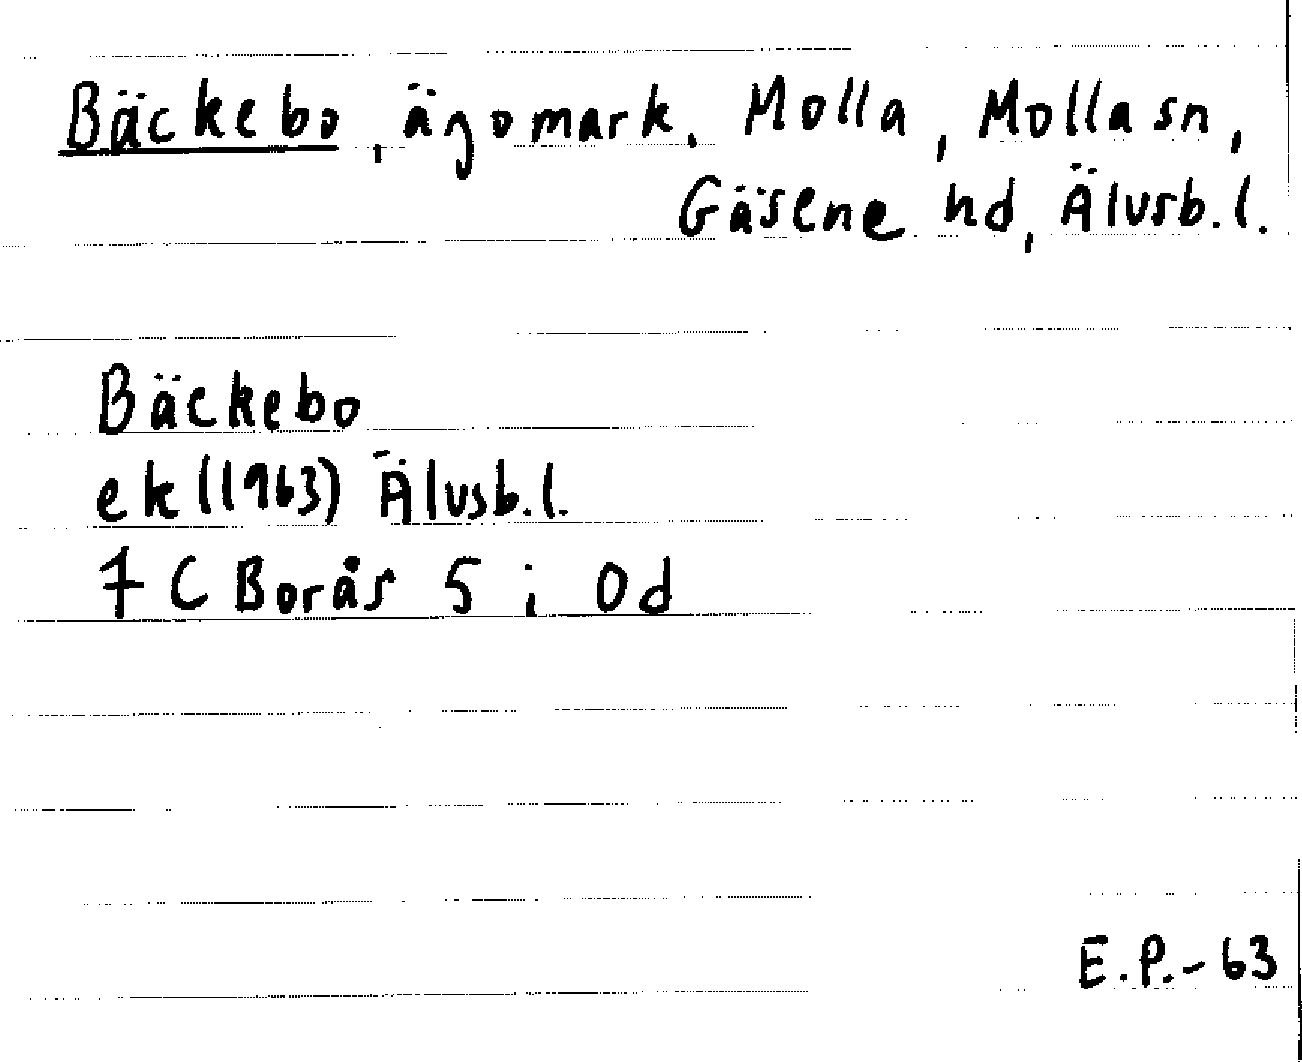 Bäckebo, ägomark. Molla, Molla sn,
Gäsene hd, Älvsb.l.
Bäckebo
ek (1963) Älvsb.l.
7 C Borås 5 i Od
E.P.-63